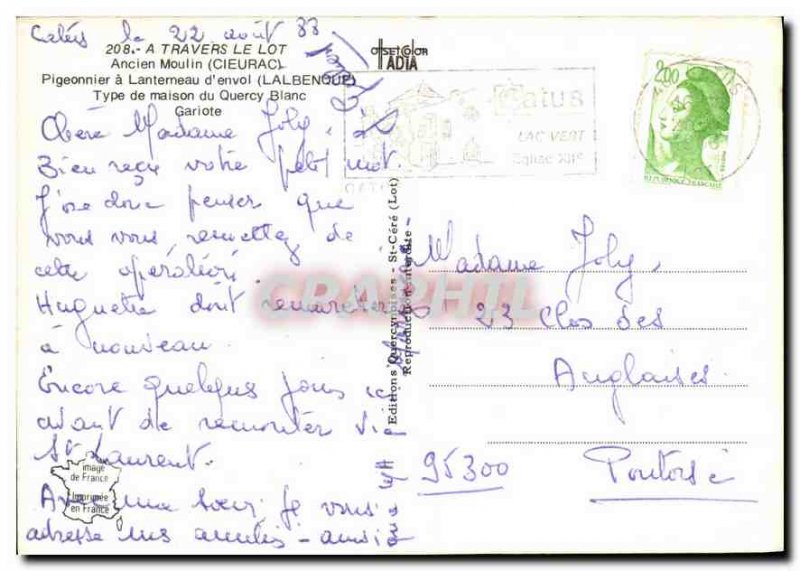 le 22 août 88
208.- A TRAVERS LE LOT
Ancien Moulin (CIEURAC)
Pigeonnier à Lanterneau d'envol (LALBENQUE)
Type de maison du Quercy Blanc
Gariote
OFFSETCOLOR
IADTA
Chère Madame Joly,
Bien reçu votre petit mot.
J'ose donc penser que
vous vous remettez de
cette opération
Huguette doit
à nouveau.
Encore quelques jours ici
avant de remonter
St Laurent.
Avec ma soeur je vous
adresse nos amitiés -
Catus
LAC VERT
Eglise XII°
2,00
REPUBLIQUE FRANÇAISE
Editions Quercynoises - St-Céré (Lot)
Reproduction interdite
CPAPHIL
Madame Joly,
23 Clos des
Anglaises
95300 Pontoise
image
de France
Imprimée
en France